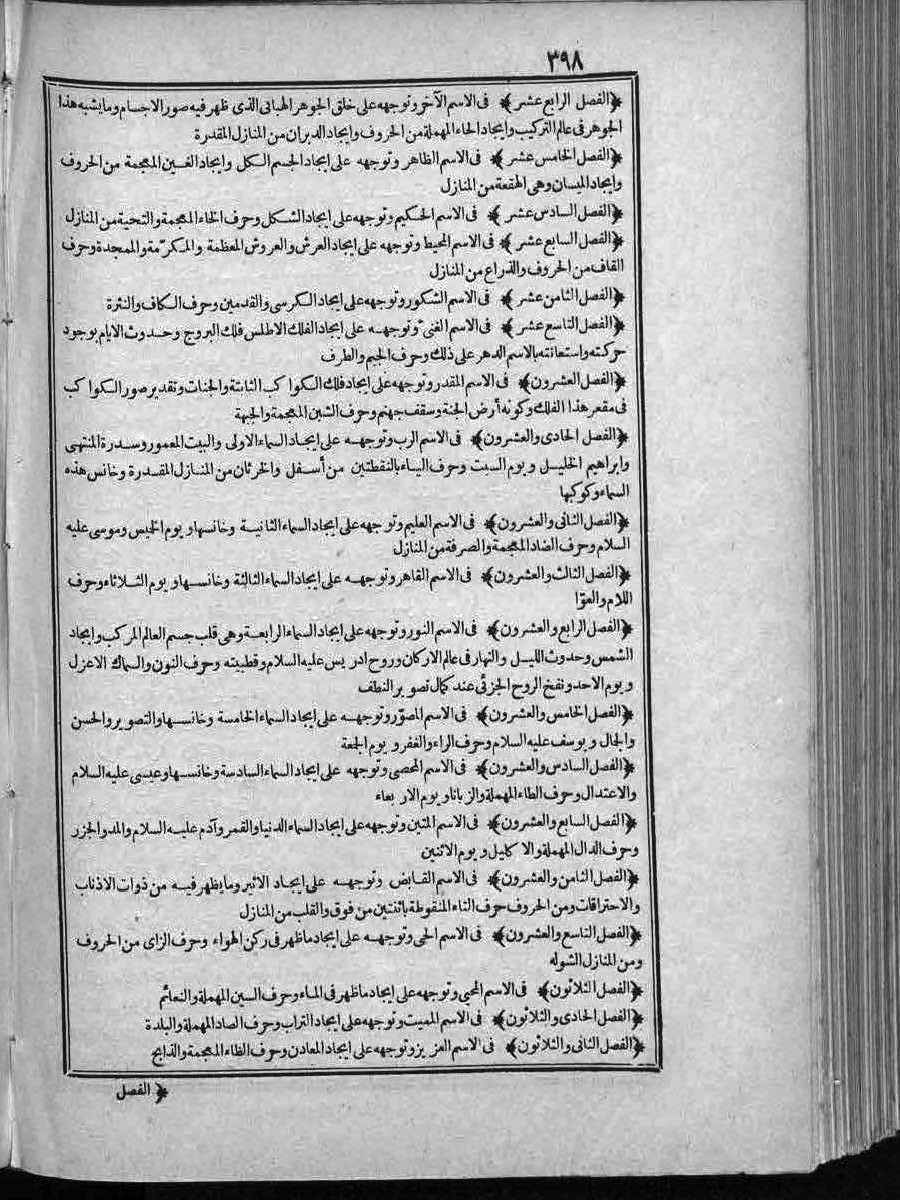 ٣٩٨
﴿الفصل الرابع عشر﴾ فى الاسم الآخر وتوجهه على خلق الجوهر الهبائى الذى ظهر فيه صور الاجسام وما يشبه هذا
الجوهر فى عالم التركيب وايجاد الحاء المهملة من الحروف وايجاد الدبران من المنازل المقدرة
﴿الفصل الخامس عشر﴾ فى الاسم الظاهر وتوجهه على ايجاد الجسم الكل وايجاد الغين المعجمة من الحروف
وايجاد الميسان وهى الهقعة من المنازل
﴿الفصل السادس عشر﴾ فى الاسم الحكيم وتوجهه على ايجاد الشكل وحرف الخاء المعجمة والتحية من المنازل
﴿الفصل السابع عشر﴾ فى الاسم المحيط وتوجهه على ايجاد العرش والعروش المعظمة والمكرّمة والممجدة وحرف
القاف من الحروف والذراع من المنازل
﴿الفصل الثامن عشر﴾ فى الاسم الشكور وتوجهه على ايجاد الكرسى والقدمين وحرف الكاف والنثرة
﴿الفصل التاسع عشر﴾ فى الاسم الغنى وتوجهه على ايجاد الفلك الاطلس فلك البروج وحدوث الايام بوجود
حركته واستعانته بالاسم الدهر على ذلك وحرف الجيم والطرف
﴿الفصل العشرون﴾ فى الاسم المقدر وتوجهه على ايجاد فلك الكواكب الثابتة والجنات وتقدير صور الكواكب
فى مقعر هذا الفلك وكونه أرض الجنة وسقف جهنم وحرف الشين المعجمة والجبهة
﴿الفصل الحادى والعشرون﴾ فى الاسم الرب وتوجهه على ايجاد السماء الاولى والبيت المعمور وسدرة المنتهى
وابراهيم الخليل ويوم السبت وحرف الياء بالنقطتين من أسفل والخرثان من المنازل المقدرة وخانس هذه
السماء وكوكبها
﴿الفصل الثانى والعشرون﴾ فى الاسم العليم وتوجهه على ايجاد السماء الثانية وخانسها ويوم الخيس وموسى عليه
السلام وحرف الضاد المعجمة والصرفة من المنازل
﴿الفصل الثالث والعشرون﴾ فى الاسم القاهر وتوجهه على ايجاد السماء الثالثة وخانسها ويوم الثلاثاء وحرف
اللام والعوّا
﴿الفصل الرابع والعشرون﴾ فى الاسم النور وتوجهه على ايجاد السماء الرابعة وهى قلب جسم العالم المركب وايجاد
الشمس وحدوث الليل والنهار فى عالم الاركان وروح ادريس عليه السلام وقطبيته وحرف النون والسماك الاعزل
ويوم الاحد ونفخ الروح الجزئى عند كمال تصوير النطف
﴿الفصل الخامس والعشرون﴾ فى الاسم المصوّر وتوجهه على ايجاد السماء الخامسة وخانسها والتصوير والحسن
والجمال ويوسف عليه السلام وحرف الراء والغفر ويوم الجمعة
﴿الفصل السادس والعشرون﴾ فى الاسم المحصى وتوجهه على ايجاد السماء السادسة وخانسها وعيسى عليه السلام
والاعتدال وحرف الطاء المهملة والزبانا ويوم الاربعاء
﴿الفصل السابع والعشرون﴾ فى الاسم المتين وتوجهه على ايجاد السماء الدنيا والقمر وآدم عليه السلام والمد والجزر
وحرف الدال المهملة والاكليل ويوم الاثنين
﴿الفصل الثامن والعشرون﴾ فى الاسم القابض وتوجهه على ايجاد الاثير وما يظهر فيه من ذوات الاذناب
والاحتراقات ومن الحروف حرف التاء المنقوطة باثنتين من فوق والقلب من المنازل
﴿الفصل التاسع والعشرون﴾ فى الاسم الحى وتوجهه على ايجاد ما ظهر فى ركن الهواء وحرف الزاى من الحروف
ومن المنازل الشوله
﴿الفصل الثلاثون﴾ فى الاسم المحيى وتوجهه على ايجاد ما ظهر فى الماء وحرف السين المهملة والنعائم
﴿الفصل الحادى والثلاثون﴾ فى الاسم المميت وتوجهه على ايجاد التراب وحرف الصاد المهملة والبلدة
﴿الفصل الثانى والثلاثون﴾ فى الاسم العزيز وتوجهه على ايجاد المعادن وحرف الظاء المعجمة والذابح
﴿الفصل